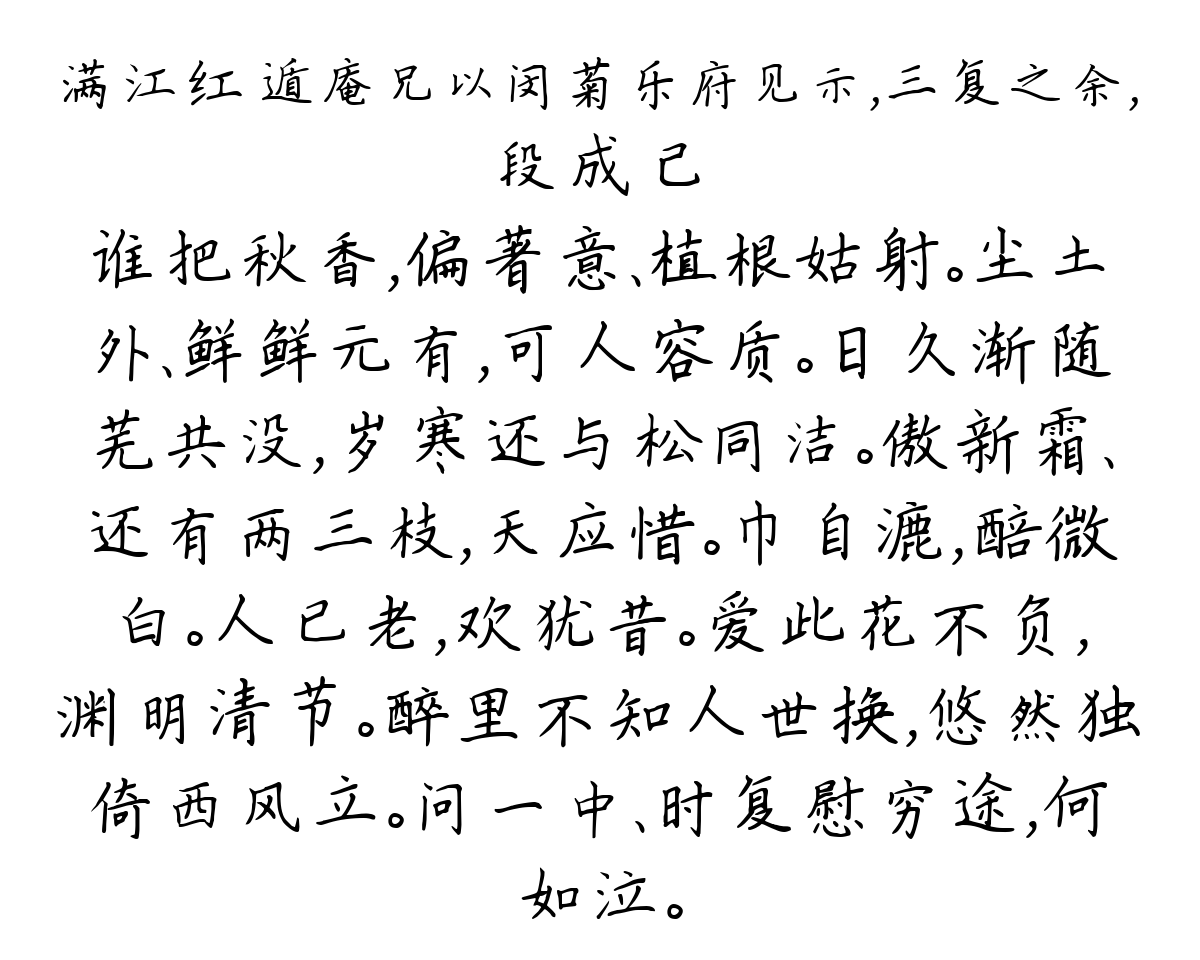 满江红 遁庵兄以闵菊乐府见示,三复之余,
段成己
谁把秋香,偏著意、植根姑射。尘土
外、鲜鲜元有,可人容质。日久渐随
芜共没,岁寒还与松同洁。傲新霜、
还有两三枝,天应惜。巾自漉,醅微
白。人已老,欢犹昔。爱此花不负,
渊明清节。醉里不知人世换,悠然独
倚西风立。问一中、时复慰穷途,何
如泣。